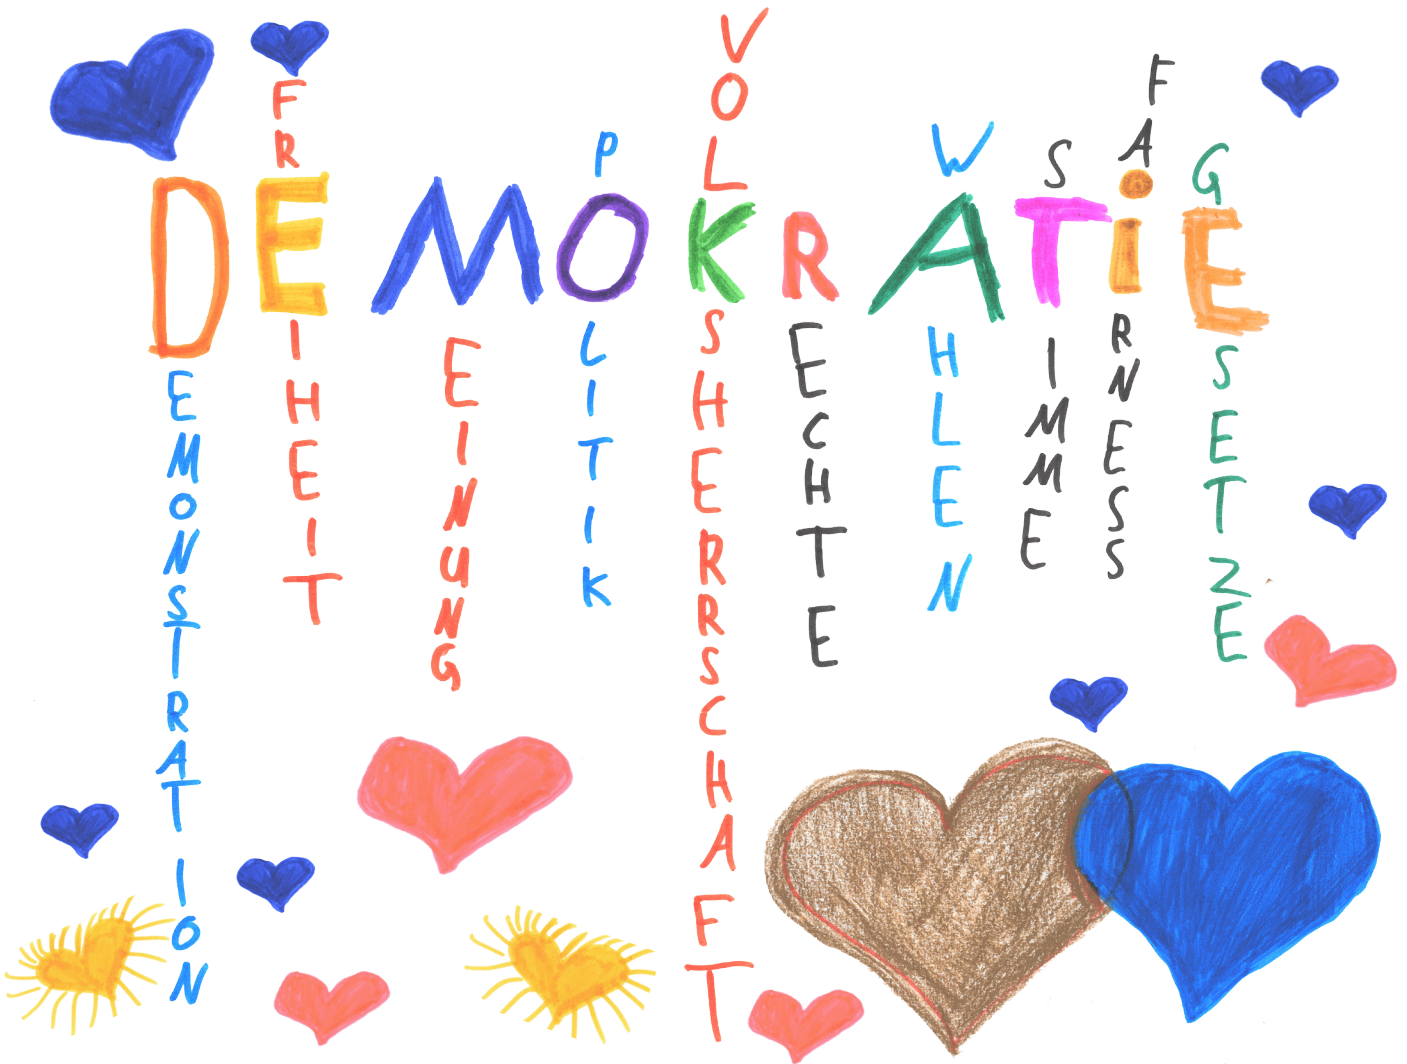 DEMOKRATiE
DEMONSTRATION
FREIHEIT
MEINUNG
POLITIK
VOLKSHERRSCHAFT
RECHTE
WAHLEN
STIMME
FAiRNESS
GESETZE